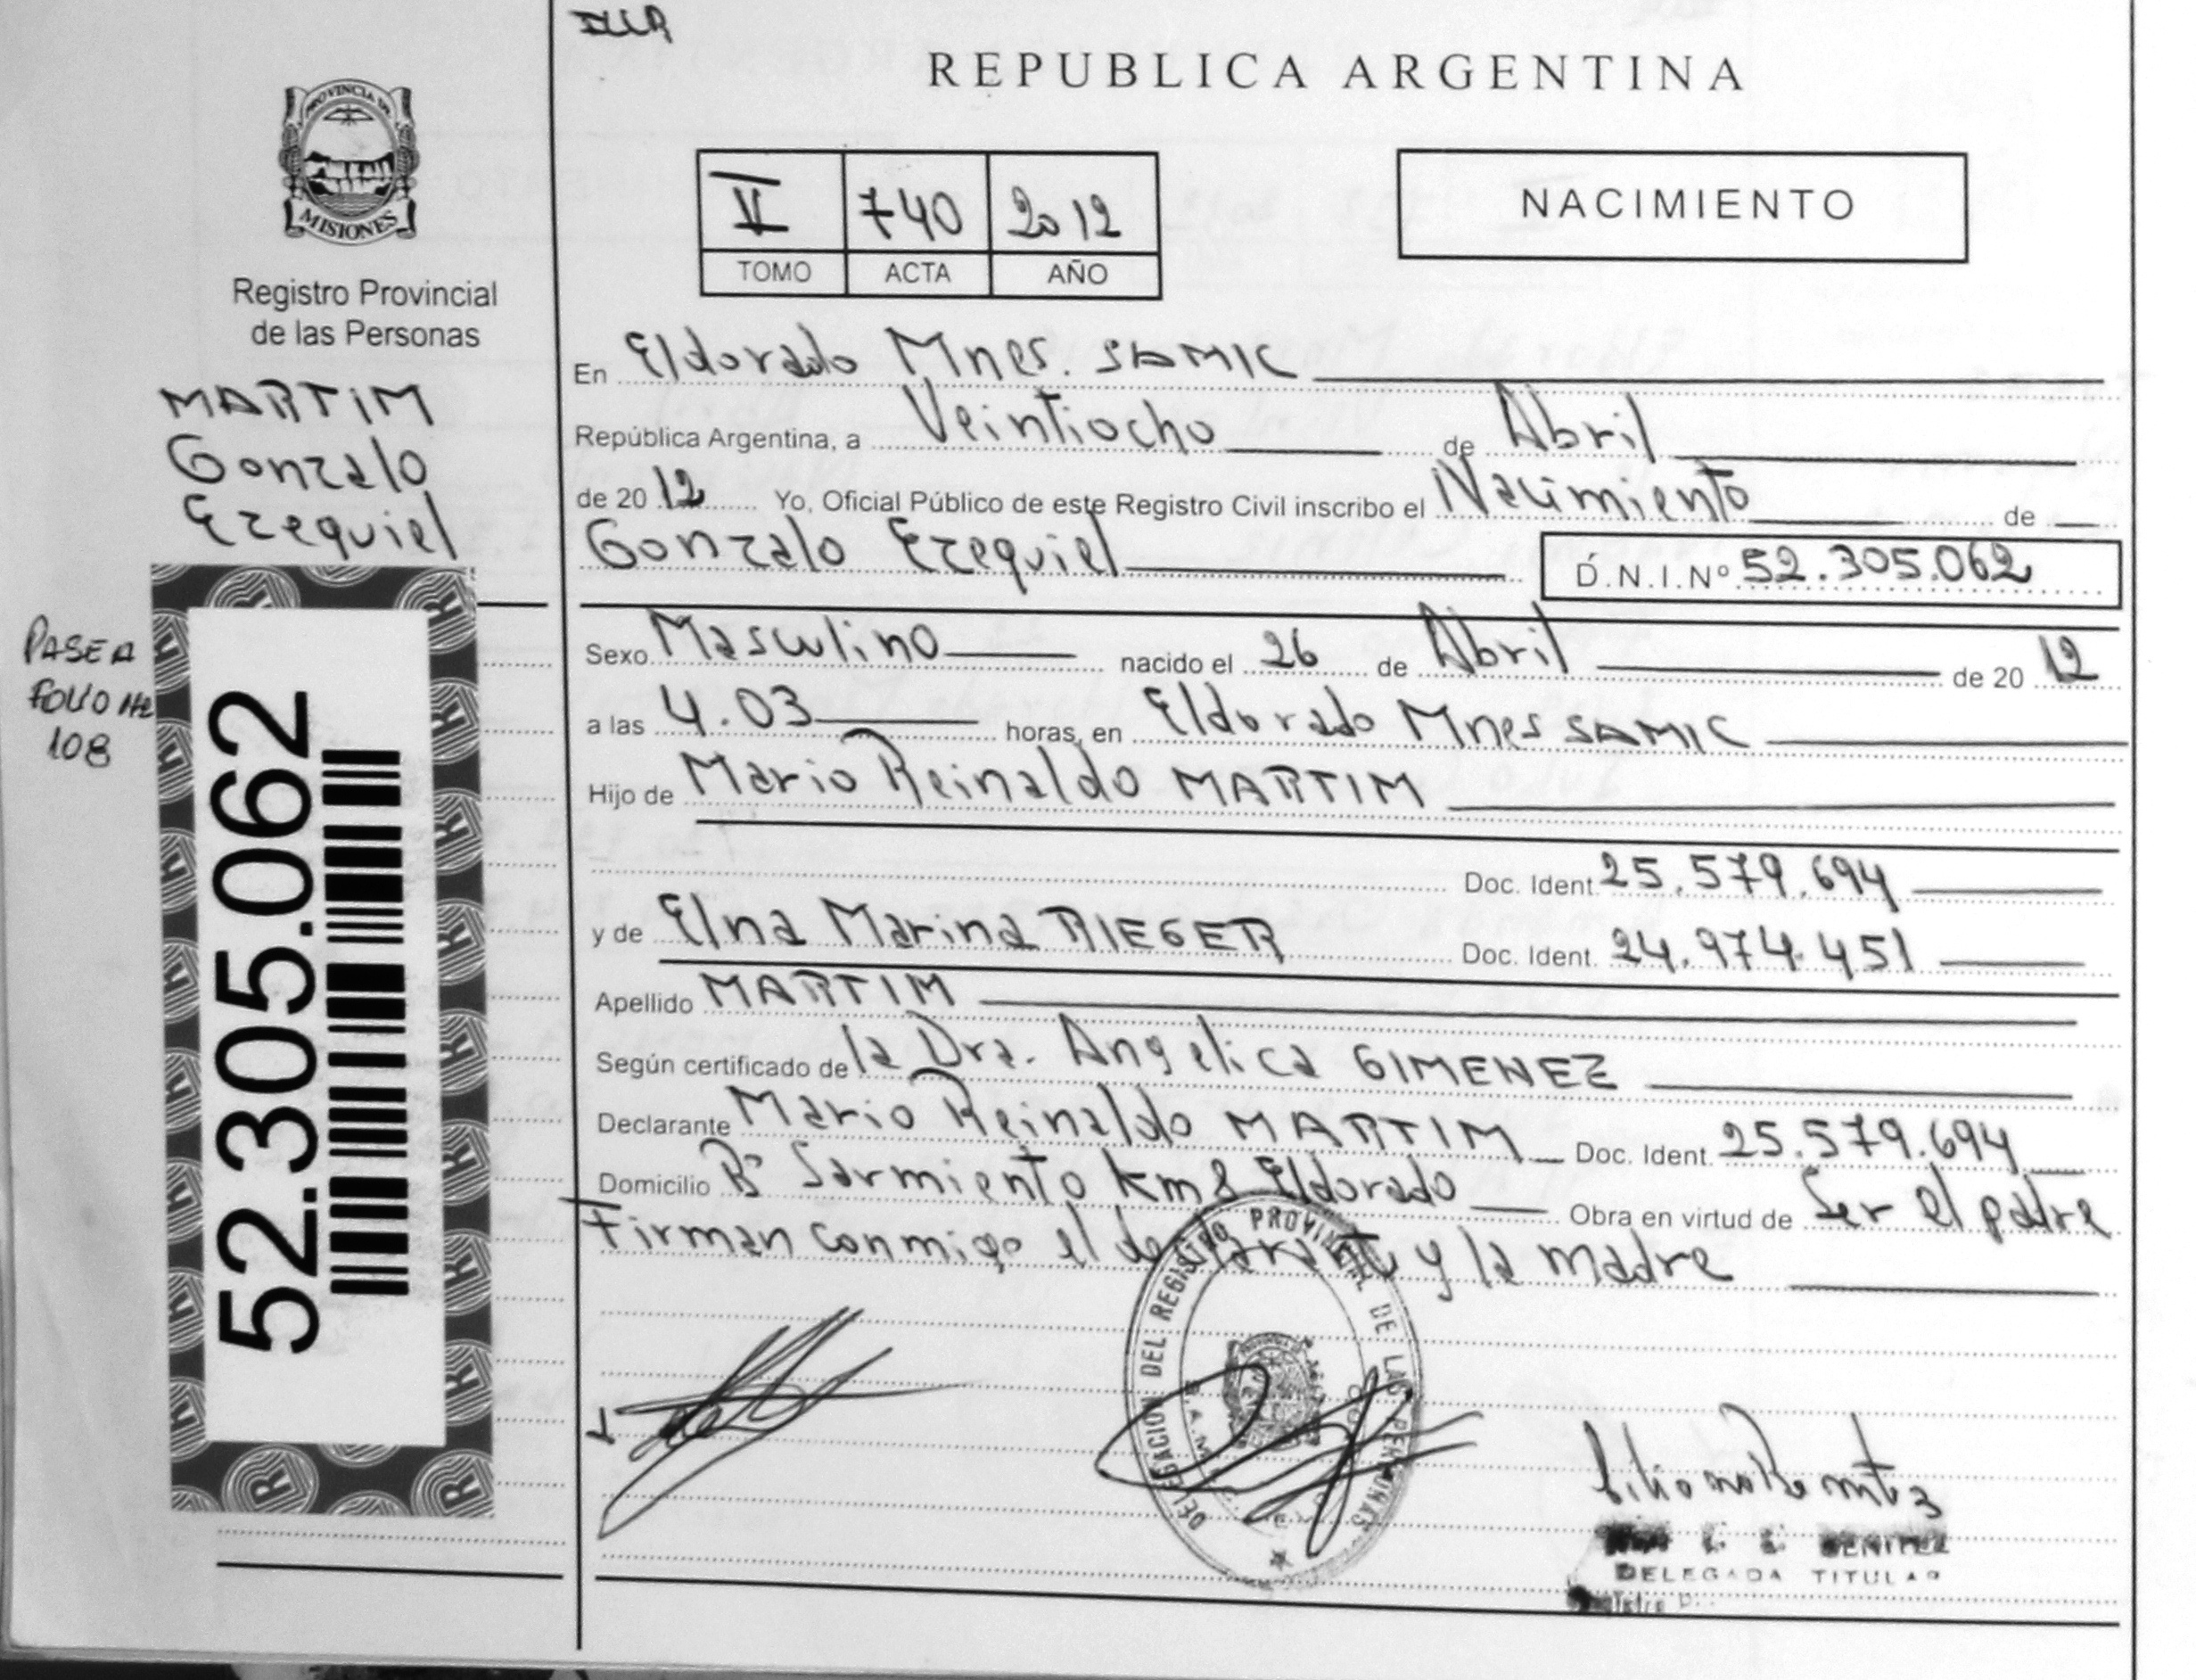 REPUBLICA ARGENTINA
PROVINCIA DE
MISIONES
Registro Provincial
de las Personas
MARTIM
Gonzalo
Ezequiel
PASE A
FOLIO Nº
108
52.305.062
V 740 2012
TOMO ACTA AÑO
NACIMIENTO
En Eldorado Mnes. SAMIC
República Argentina, a Veintiocho de Abril
de 2012 Yo, Oficial Público de este Registro Civil inscribo el Nacimiento de
Gonzalo Ezequiel D.N.I.Nº 52.305.062
Sexo Masculino nacido el 26 de Abril de 2012
a las 4.03 horas, en Eldorado Mnes SAMIC
Hijo de Mario Reinaldo MARTIM
Doc. Ident. 25.579.694
y de Elna Marina RIEGER Doc. Ident. 24.974.451
Apellido MARTIM
Según certificado de la Dra. Angelica GIMENEZ
Declarante Mario Reinaldo MARTIM Doc. Ident. 25.579.694
Domicilio Bº Sarmiento km 8 Eldorado Obra en virtud de Ser el padre
Firman conmigo el declarante y la madre
DELEGACION DEL REGISTRO PROVINCIAL DE LAS PERSONAS
BENITEZ
DELEGADA TITULAR